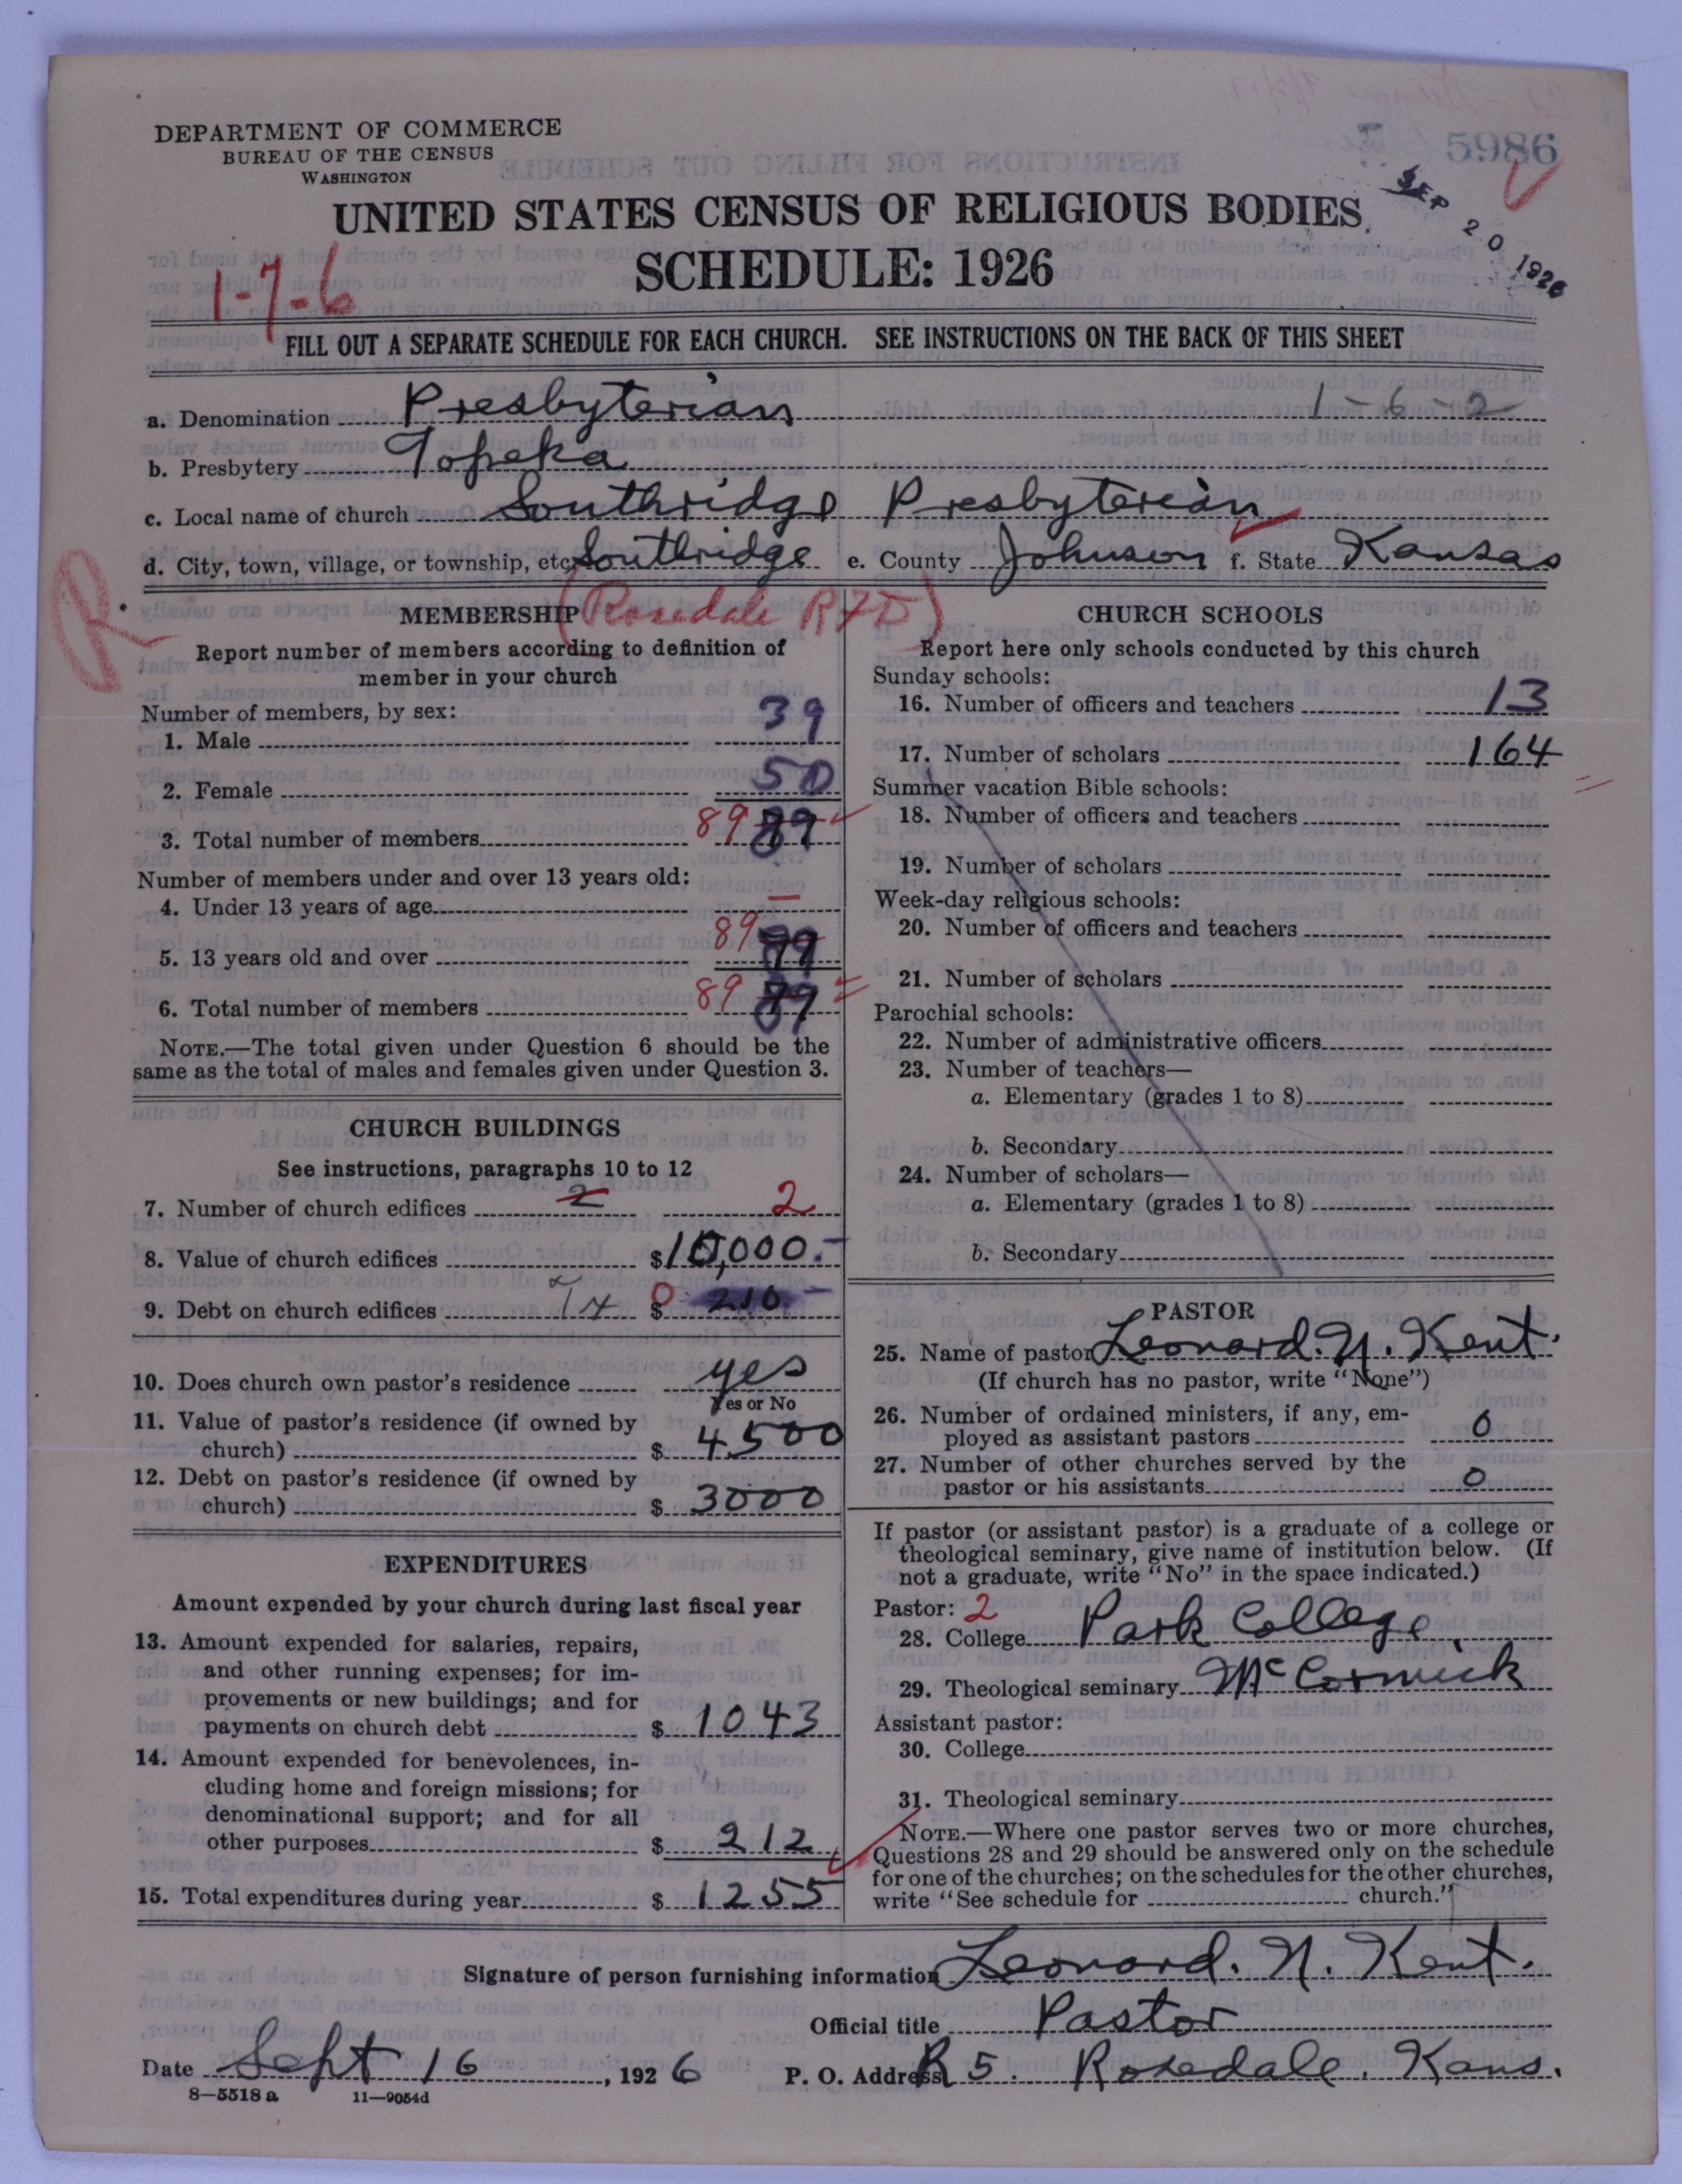 DEPARTMENT OF COMMERCE
BUREAU OF THE CENSUS
WASHINGTON
5986
SEP 20 1926
UNITED STATES CENSUS OF RELIGIOUS BODIES
SCHEDULE: 1926
1-7-6
FILL OUT A SEPARATE SCHEDULE FOR EACH CHURCH. SEE INSTRUCTIONS ON THE BACK OF THIS SHEET
a. Denomination Presbyterian 1-6-2
b. Presbytery Topeka
c. Local name of church Southridge Presbyterian
d. City, town, village, or township, etc. Southridge e. County Johnson f. State Kansas
R
(Rosedale RFD)
MEMBERSHIP
Report number of members according to definition of
member in your church
Number of members, by sex:
1. Male 39
2. Female 50
3. Total number of members 89 89
Number of members under and over 13 years old:
4. Under 13 years of age —
5. 13 years old and over 89 89
6. Total number of members 89 89
NOTE.—The total given under Question 6 should be the
same as the total of males and females given under Question 3.
CHURCH BUILDINGS
See instructions, paragraphs 10 to 12
7. Number of church edifices 2 2
8. Value of church edifices $10,000.-
9. Debt on church edifices $ 0 210.-
10. Does church own pastor's residence yes
Yes or No
11. Value of pastor's residence (if owned by
church) $ 4500
12. Debt on pastor's residence (if owned by
church) $ 3000
EXPENDITURES
Amount expended by your church during last fiscal year
13. Amount expended for salaries, repairs,
and other running expenses; for im-
provements or new buildings; and for
payments on church debt $ 1043
14. Amount expended for benevolences, in-
cluding home and foreign missions; for
denominational support; and for all
other purposes $ 212
15. Total expenditures during year $ 1255
CHURCH SCHOOLS
Report here only schools conducted by this church
Sunday schools:
16. Number of officers and teachers 13
17. Number of scholars 164
Summer vacation Bible schools:
18. Number of officers and teachers
19. Number of scholars
Week-day religious schools:
20. Number of officers and teachers
21. Number of scholars
Parochial schools:
22. Number of administrative officers
23. Number of teachers—
a. Elementary (grades 1 to 8)
b. Secondary
24. Number of scholars—
a. Elementary (grades 1 to 8)
b. Secondary
PASTOR
25. Name of pastor Leonard. N. Kent.
(If church has no pastor, write "None")
26. Number of ordained ministers, if any, em-
ployed as assistant pastors 0
27. Number of other churches served by the
pastor or his assistants 0
If pastor (or assistant pastor) is a graduate of a college or
theological seminary, give name of institution below. (If
not a graduate, write "No" in the space indicated.)
Pastor: 2
28. College Park College.
29. Theological seminary McCormick
Assistant pastor:
30. College
31. Theological seminary
NOTE.—Where one pastor serves two or more churches,
Questions 28 and 29 should be answered only on the schedule
for one of the churches; on the schedules for the other churches,
write "See schedule for church."
Signature of person furnishing information Leonard. N. Kent.
Official title Pastor
Date Sept 16, 1926 P. O. Address R 5. Rosedale. Kans.
8—5518 a 11—9054d